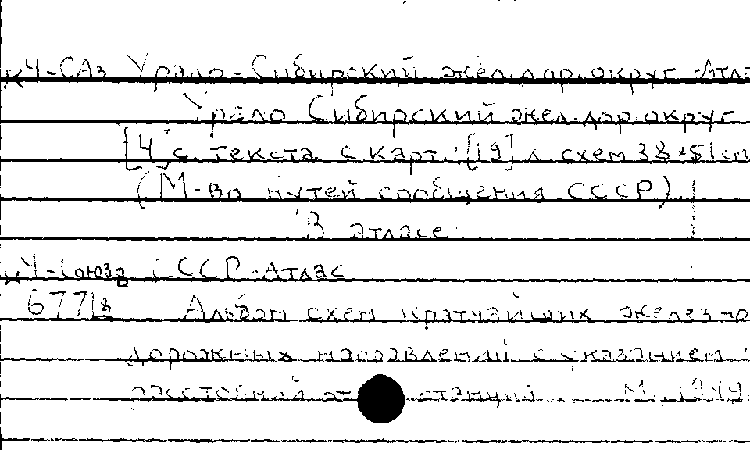 Ч-САз Урало-Сибирский жел.дор.округ-Атл
Урало Сибирский жел.дор.округ
[4] с. текста с карт. [19] л схем 38×51см
(М-во путей сообщения СССР)
В атласе
Ч-Союз СССР-Атлас
677 Альбом схем кратчайших железно
дорожных направлений с указанием
расстояний станций М. 1949